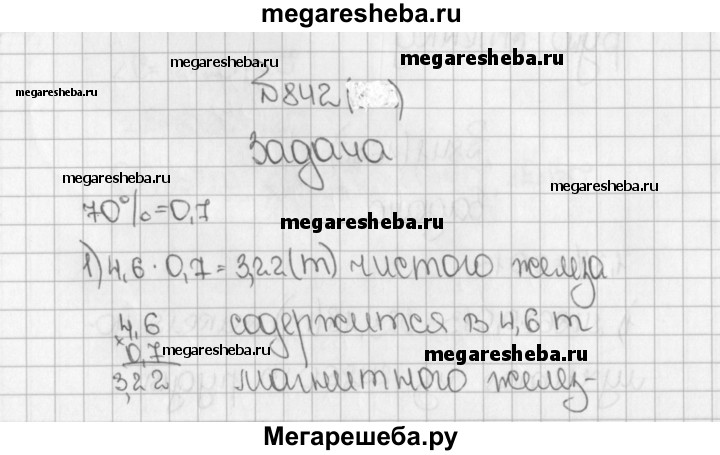 megaresheba.ru
megaresheba.ru megaresheba.ru
megaresheba.ru
№842( )
задача
megaresheba.ru megaresheba.ru
70%=0,7
megaresheba.ru
1) 4,6 · 0,7 = 3,22 (т) чистого железа
4,6 содержится в 4,6 т
× 0,7
megaresheba.ru megaresheba.ru
3,22 магнитного желез-
Мегарешеба.ру